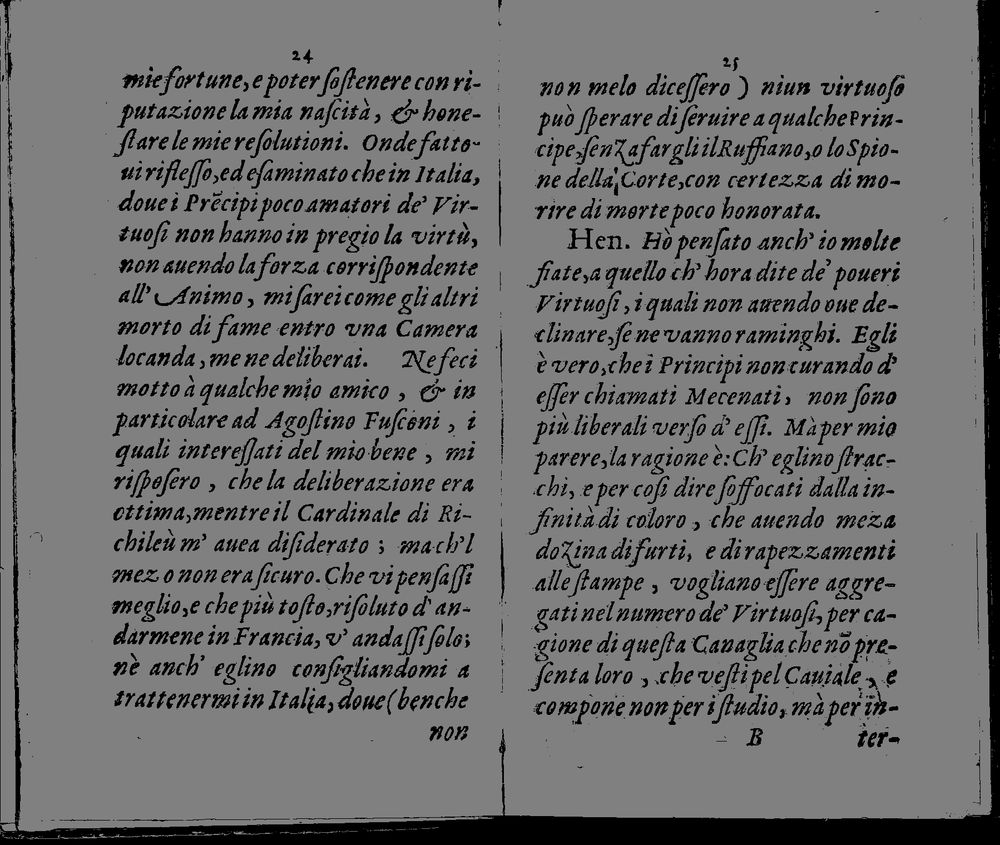 24
mie fortune, e poter ſoſtenere con ri-
putazione la mia naſcità, & hone-
ſtare le mie reſolutioni. Onde fatto-
ui rifleſſo, ed eſaminato che in Italia,
doue i Prēcipi poco amatori de' Vir-
tuoſi non hanno in pregio la virtù,
non auendo la forza corriſpondente
all' Animo, mi ſarei come gli altri
morto di fame entro vna Camera
locanda, me ne deliberai. Ne feci
motto à qualche mio amico, & in
particolare ad Agoſtino Fuſconi, i
quali intereſſati del mio bene, mi
riſpoſero, che la deliberazione era
ottima, mentre il Cardinale di Ri-
chileù m' auea diſiderato; ma ch'l
mezo non era ſicuro. Che vi penſaſſi
meglio, e che più toſto, riſoluto d' an-
darmene in Francia, v' andaſſi ſolo;
nè anch' eglino conſigliandomi a
trattenermi in Italia, doue (benche
non
25
non melo diceſſero) niun virtuoſo
può ſperare di ſeruire a qualche Prin-
cipe, ſenza fargli il Ruffiano, o lo Spio-
ne della Corte, con certezza di mo-
rire di morte poco honorata.
Hen. Hò penſato anch' io molte
fiate, a quello ch' hora dite de' poueri
Virtuoſi, i quali non auendo oue de-
clinare, ſe ne vanno raminghi. Egli
è vero, che i Principi non curando d'
eſſer chiamati Mecenati, non ſono
più liberali verſo d' eſſi. Mà per mio
parere, la ragione è: Ch' eglino ſtrac-
chi, e per coſi dire ſoffocati dalla in-
finità di coloro, che auendo meza
dozina di furti, e di rapezzamenti
alle ſtampe, vogliano eſſere aggre-
gati nel numero de' Virtuoſi, per ca-
gione di queſta Canaglia che nō pre-
ſenta loro, che veſti pel Cauiale, e
compone non per iſtudio, mà per in-
B ter-